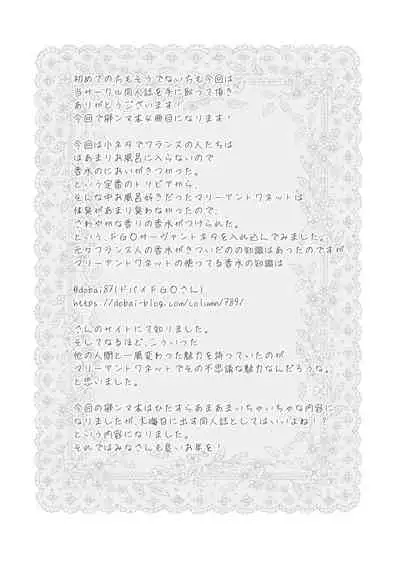 初めての方もそうでない方も今回は
当サークル同人誌を手に取って頂き
ありがとうございます!
今回で御ンマ本4冊目になります!
今回は小ネタでフランスの人たちは
はあまりお風呂に入らないので
香水のにおいがきつかった。
という定番のトリビアから、
そんな中お風呂好きだったマリーアントワネットは
体臭があまり臭わなかったので、
さわやかな香りの香水がつけられた。
という、FGOサーヴァントネタを入れ込んでみました。
元々フランス人の香水がきついだのの知識はあったのですが
マリーアントワネットの使ってる香水の知識は…
@dobai87(ドバイFGOさん)
https://dobai-blog.com/column/789/
さんのサイトにて知りました。
そしてなるほど、こういった
他の人間と一風変わった魅力を持っていたのが
マリーアントワネットでその不思議な魅力なんだろうな。
と思いました。
今回の御ンマ本はひたすらあまあまいちゃいちゃな内容に
なりましたが、大晦日に出す同人誌としてはいいよね!?
という内容になりました。
それではみなさんも良いお年を!